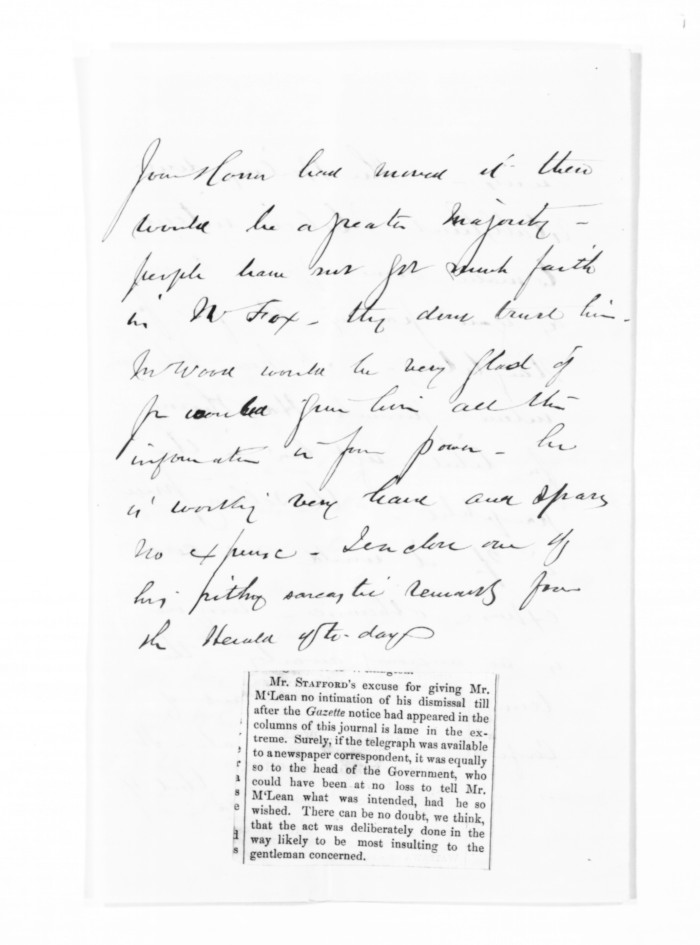 had moved it there
would be a greater Majority -
people have not got much faith
in Mr Fox - they dont trust him -
Mr Wood would be very glad if
would give him all the
information in your power - he
is working very hard and spares
no expense - I enclose one of
his pithy sarcastic remarks from
the Herald of to-day
Mr. STAFFORD'S excuse for giving Mr.
M'Lean no intimation of his dismissal till
after the Gazette notice had appeared in the
columns of this journal is lame in the ex-
treme. Surely, if the telegraph was available
to a newspaper correspondent, it was equally
so to the head of the Government, who
could have been at no loss to tell Mr.
M'Lean what was intended, had he so
wished. There can be no doubt, we think,
that the act was deliberately done in the
way likely to be most insulting to the
gentleman concerned.